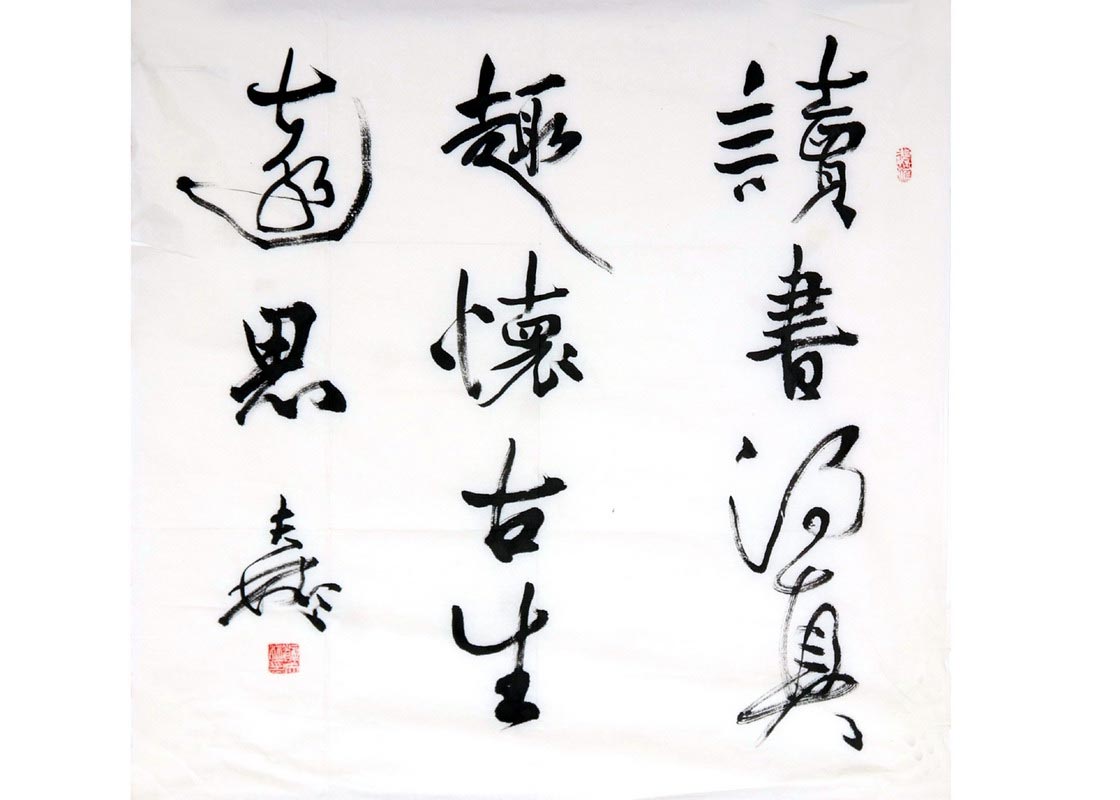 讀書得真
趣懷古生
遠思